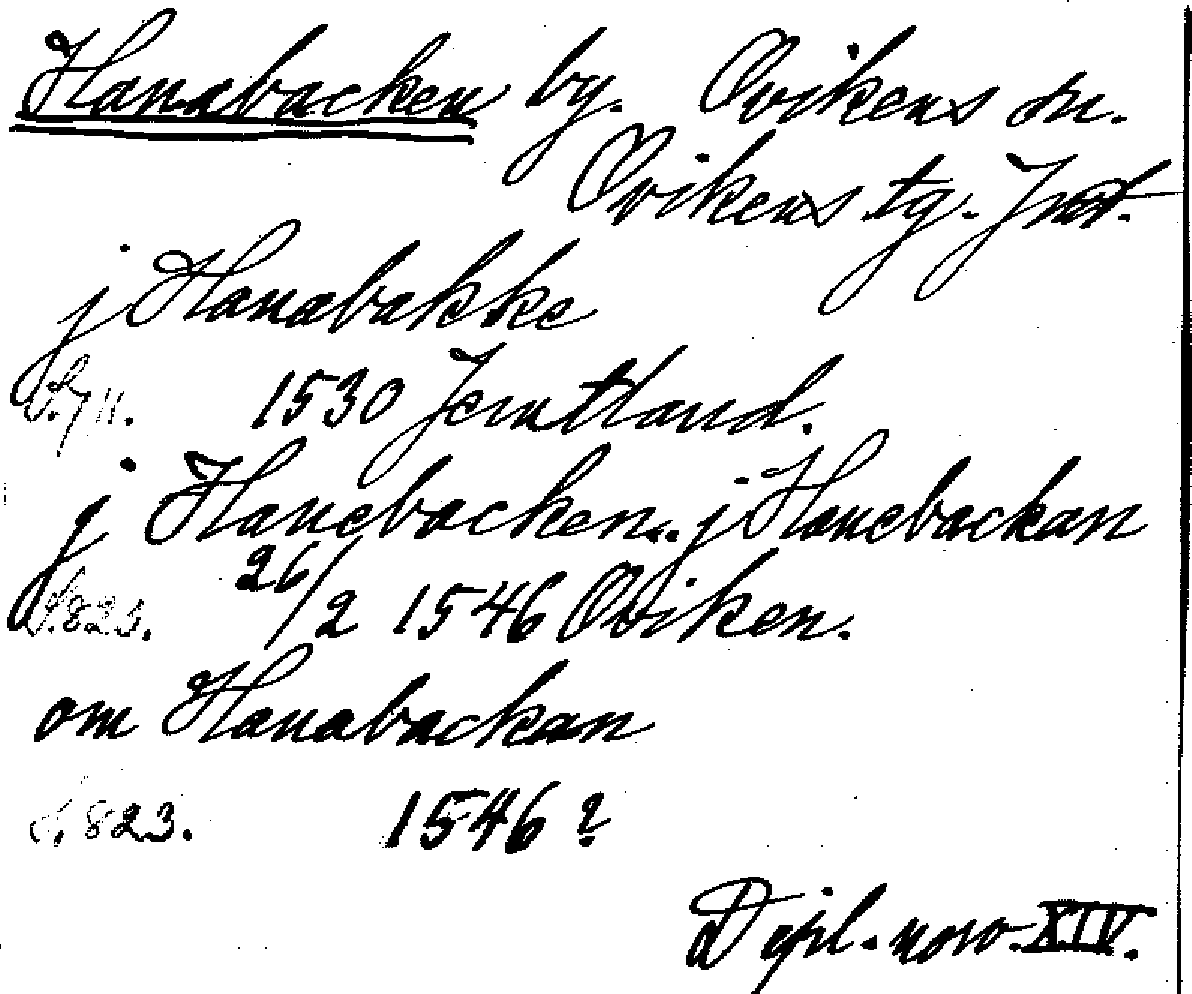 Hanabacken by. Ovikens sn.
Ovikens tg. Jmt.
j Hanabakke
S. 711. 1530 Jemtland.
j Hanebacken.. j Hanebackan
S. 823. 26/2 1546 Oviken.
om Hanabackan
S. 823. 1546?
Dipl. norv. XIV.